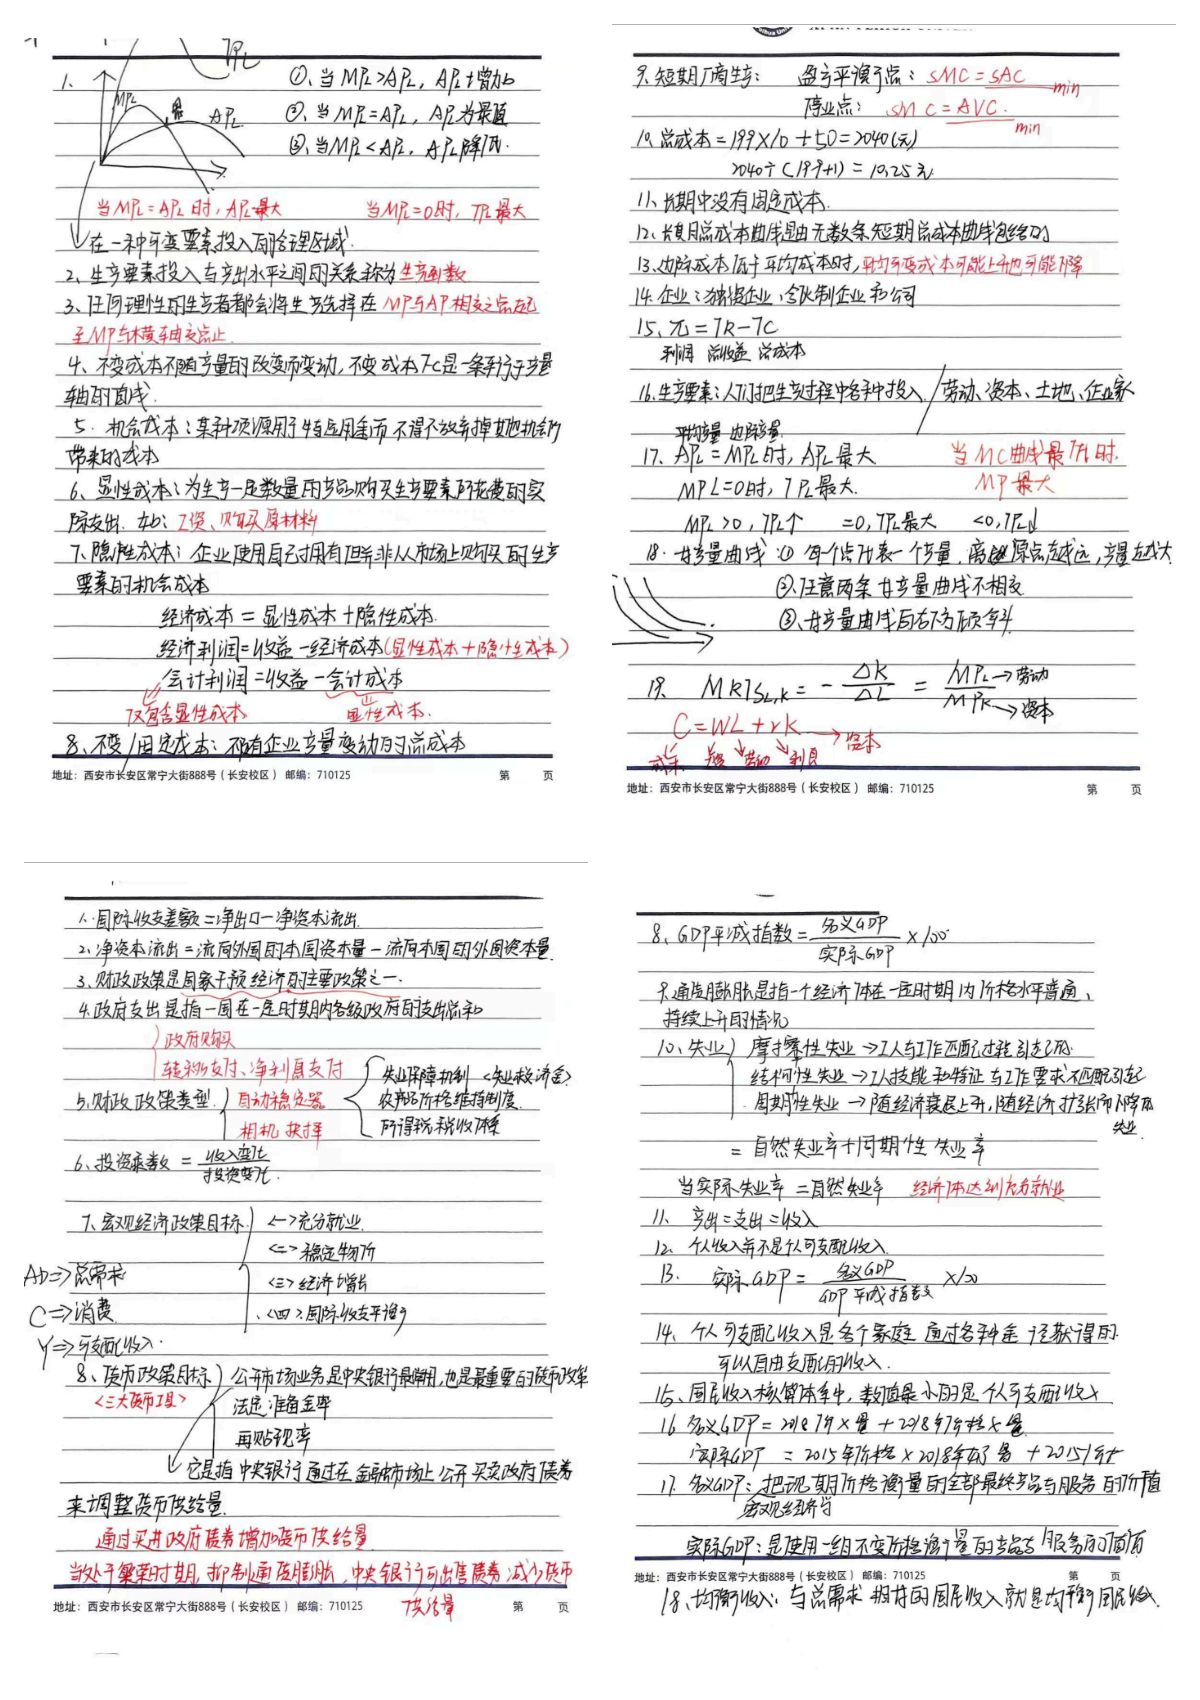 TPL
1.
MPL
APL
①、当MPL>APL,APL增加
②、当MPL=APL,APL为最值
③、当MPL<APL,APL降低.
当MPL=APL时,APL最大 当MPL=0时,TPL最大
在一种可变要素投入的合理区域.
2、生产要素投入与产出水平之间的关系称为生产函数
3、任何理性的生产者都会将生产选择在MP与AP相交之点起
至MP与横轴交点止.
4、不变成本不随产量的改变而变动,不变成本FC是一条平行于产量
轴的直线.
5.机会成本:某种项源用于特定用途而不得不放弃掉其他机会所
带来的成本
6、显性成本:为生产一定数量的产品购买生产要素所花费的实
际支出.如:工资、购买原材料
7、隐性成本:企业使用自己拥有但并非从市场上购买的生产
要素的机会成本
经济成本=显性成本+隐性成本.
经济利润=收益-经济成本(显性成本+隐性成本)
会计利润=收益-会计成本
仅包含显性成本 显性成本.
8、不变/固定成本:不随企业产量变动的总成本
地址:西安市长安区常宁大街888号(长安校区) 邮编:710125 第 页
9.短期厂商生产: 盈亏平衡点:SMC=SAC min
停业点:SMC=AVC. min
10.总成本=199×10+50=2040(元)
2040÷(199+1)=10.25元
11、长期中没有固定成本.
12、长期总成本曲线是由无数条短期总成本曲线包络的
13.边际成本低于平均成本时,平均可变成本可能上升也可能下降
14.企业:独资企业,合伙制企业和公司
15、π=TR-TC
利润 总收益 总成本
16.生产要素:人们把生产过程中各种投入/劳动、资本、土地、企业家
平均产量 边际产量
17、APL=MPL时,APL最大 当MC曲线最低时.
MPL=0时,TPL最大. MP最大
MPL>0,TPL↑ =0,TPL最大 <0,TPL↓
18.等产量曲线 ①每个点代表一个产量,离原点越远,产量越大
②.任意两条等产量曲线不相交
③、等产量曲线向右下方倾斜
19. MRTSL,K=-ΔK/ΔL=MPL/MPK →劳动 →资本
C=WL+rK →资本
成本 劳动 利息
地址:西安市长安区常宁大街888号(长安校区) 邮编:710125 第 页
1.国际收支差额=净出口-净资本流出.
2.净资本流出=流向外国的本国资本量-流向本国的外国资本量
3.财政政策是国家干预经济的主要政策之一.
4.政府支出是指一国在一定时期内各级政府的支出总和
政府购买
转移支付、净利息支付
5.财政政策类型 自动稳定器 相机抉择
失业保障机制<失业救济金>
农产品价格维持制度.
所得税税收体系
6、投资乘数=收入变化/投资变化.
7、宏观经济政策目标 <一>充分就业.
<二>稳定物价
AD⇒总需求 <三>经济增长
C⇒消费. <四>.国际收支平衡
Y⇒可支配收入.
8、货币政策目标 公开市场业务是中央银行最常用,也是最重要的货币政策
<三大货币工具> 法定准备金率
再贴现率
它是指中央银行通过在金融市场上公开买卖政府债券
来调整货币供给量.
通过买进政府债券增加货币供给量
当处于繁荣时期,抑制通货膨胀,中央银行可出售债券,减少货币
供给量
地址:西安市长安区常宁大街888号(长安校区) 邮编:710125 第 页
8、GDP平减指数=名义GDP/实际GDP×100
9.通货膨胀是指一个经济体在一定时期内价格水平普遍、
持续上升的情况
10、失业 摩擦性失业→工人与工作匹配过程引起的.
结构性失业→工人技能和特征与工作要求不匹配引起
周期性失业→随经济衰退上升,随经济扩张而下降的
失业.
=自然失业率+周期性失业率
当实际失业率=自然失业率 经济体达到充分就业
11、产出=支出=收入
12.个人收入并不是个人可支配收入.
13. 实际GDP=名义GDP/GDP平减指数×100
14、个人可支配收入是各个家庭通过各种途径获得的.
可以自由支配的收入.
15、国民收入核算体系中,数值最小的是个人可支配收入
16.名义GDP=2018价×量+2018年价格×量.
实际GDP=2015年价格×2018年的量+2015价×
17.名义GDP:把现期价格衡量的全部最终产品与服务的价值
宏观经济学
实际GDP:是使用一组不变价格衡量的产品与服务的价值
地址:西安市长安区常宁大街888号(长安校区) 邮编:710125 第 页
18、均衡收入:与总需求相等的国民收入就是均衡国民收入.